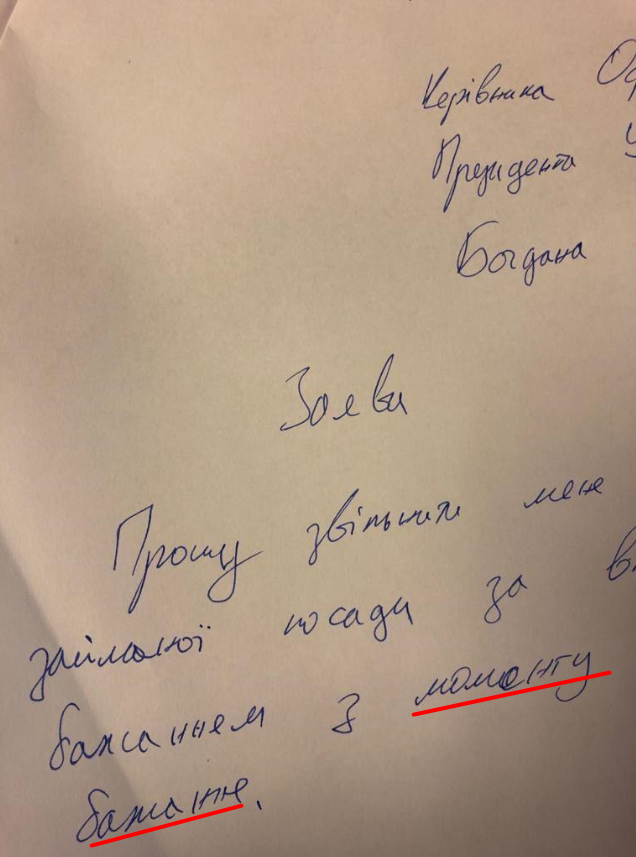 Керівника Оф
Президента У
Богдана
Заява
Прошу звільнити мене
займаної посади за вл
бажаннем з моменту
бажанне.